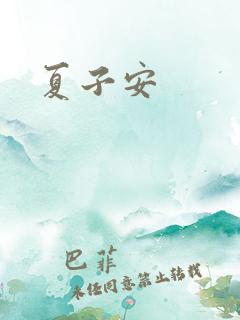 夏子安
巴菲
未经同意禁止转载